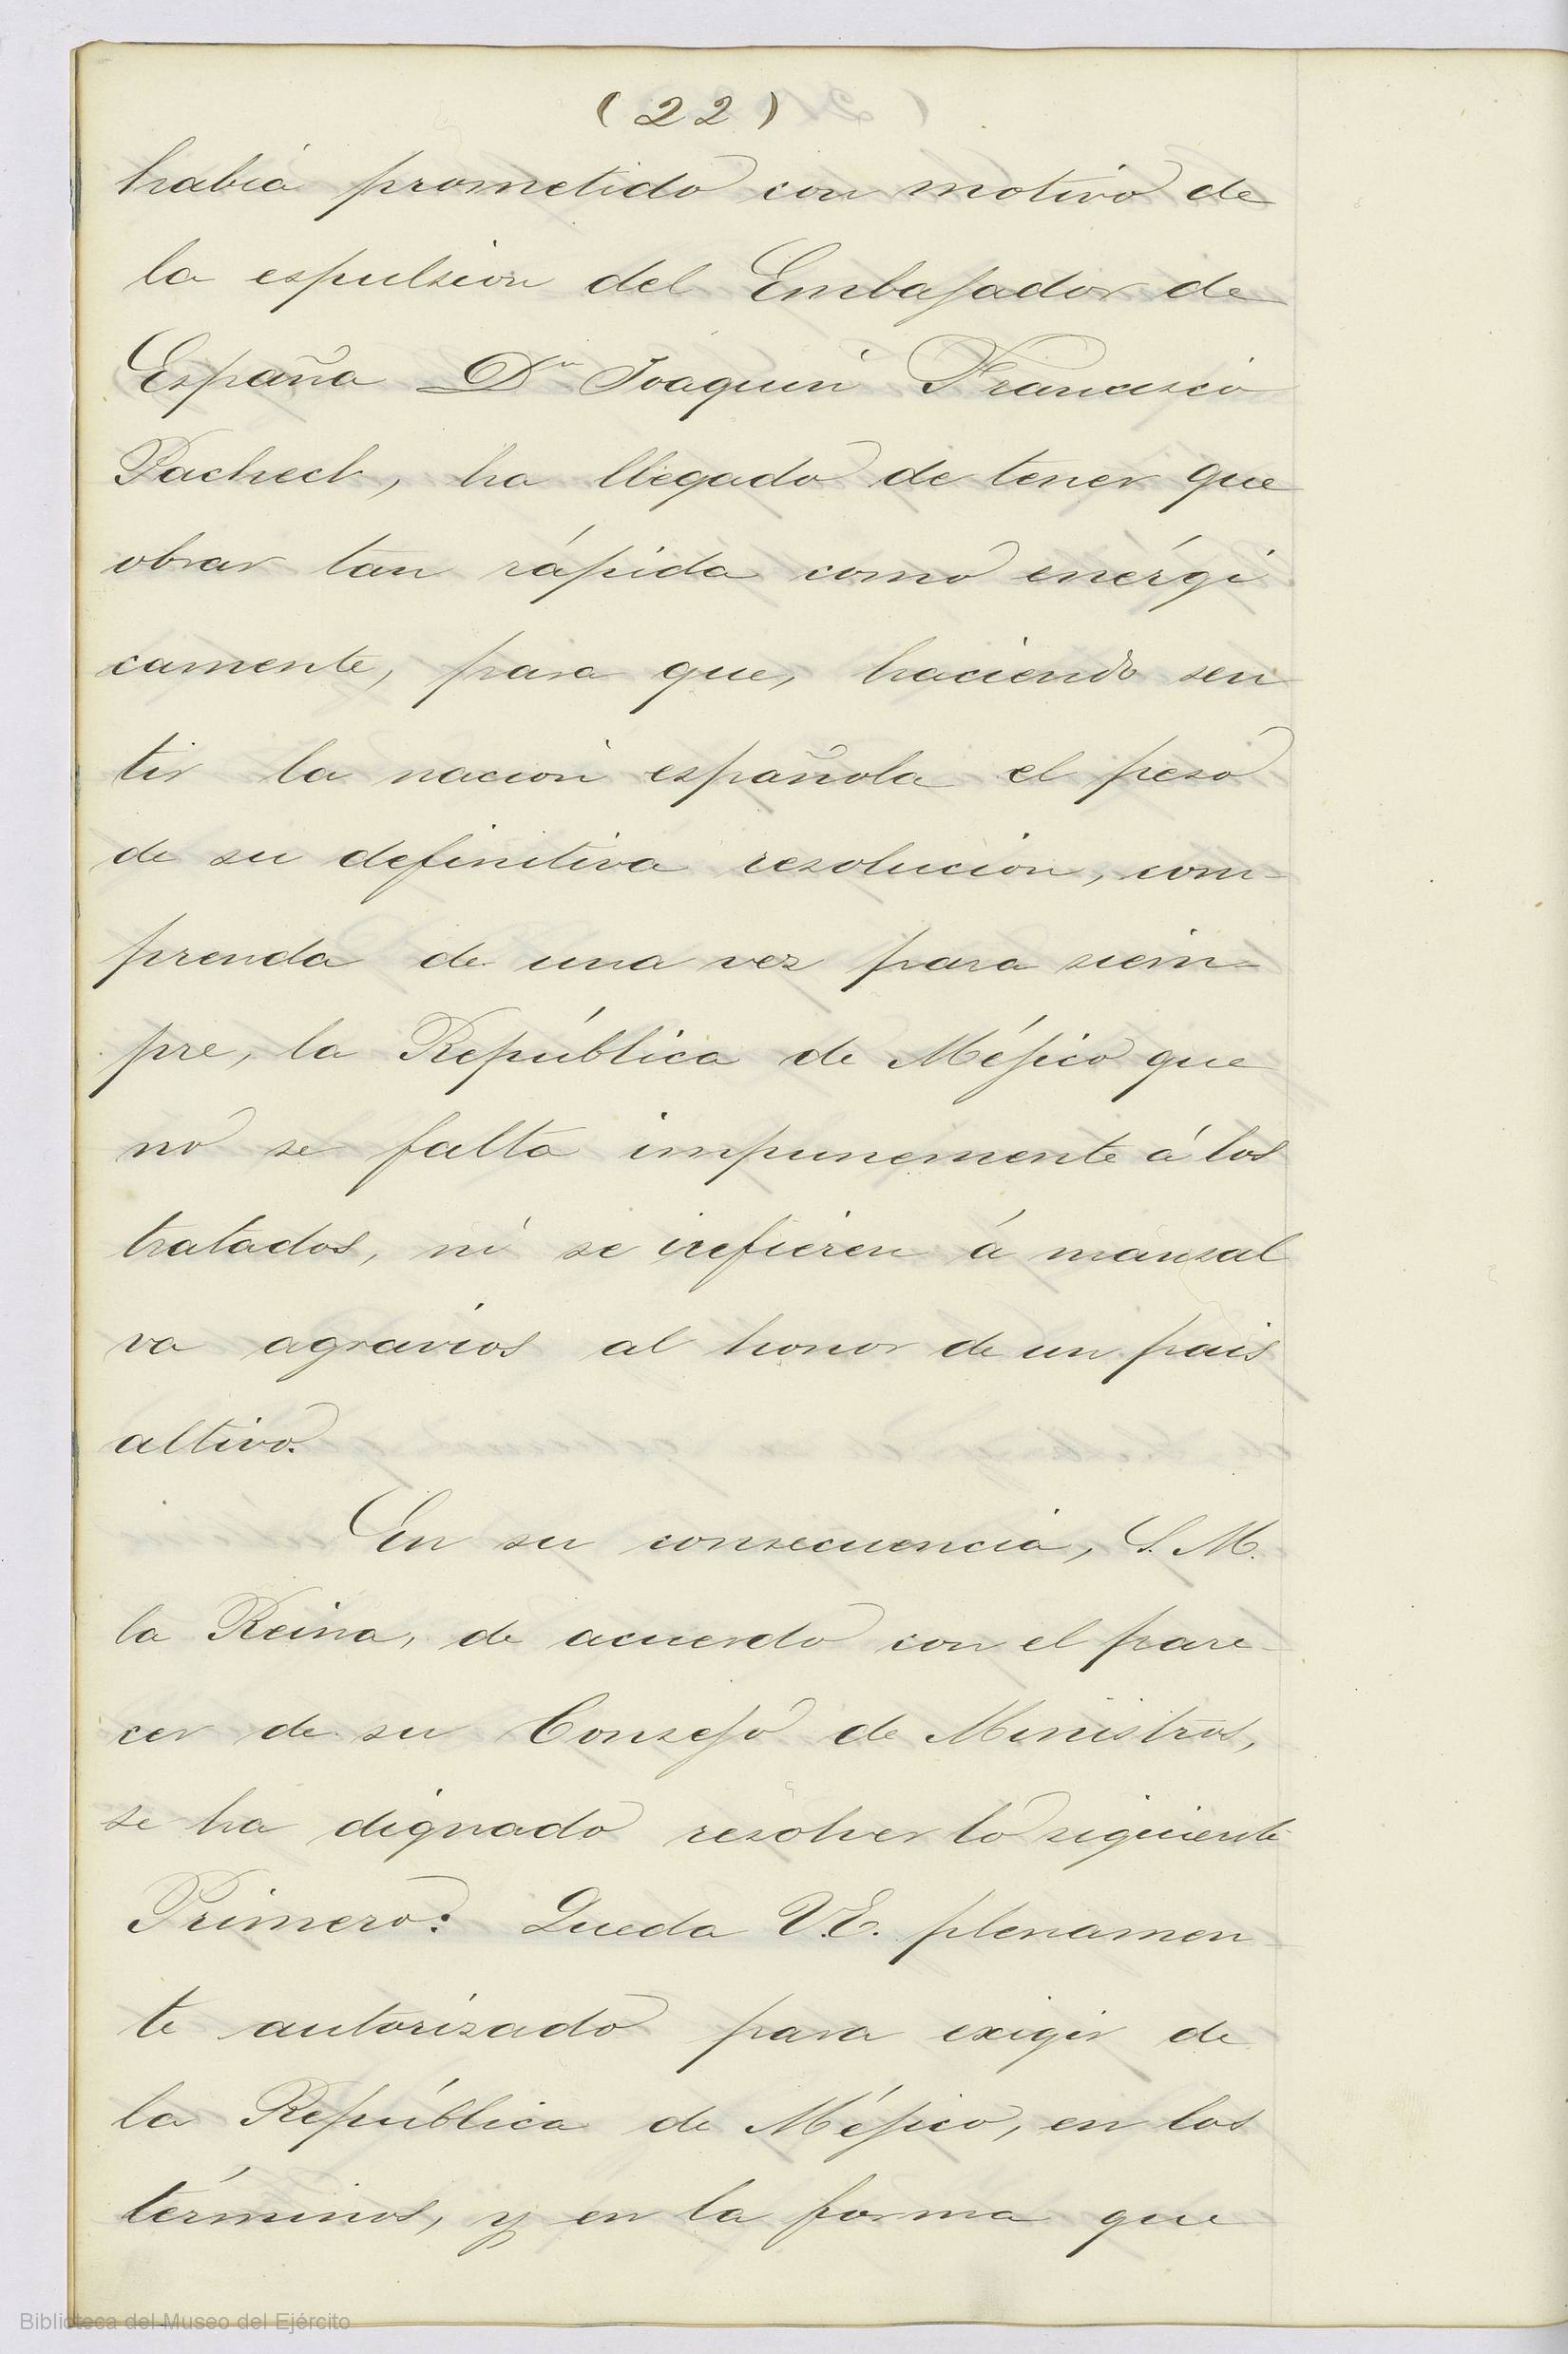 (22)
habia prometido con motivo de
la espulsion del Embajador de
España Dn Joaquin Francisco
Pacheck, ha llegado de tener que
obrar tan rápida como enérgi
camente, para que, haciendo sen
tir la nacion española el peso
de su definitiva resolucion, com-
prenda de una vez para siem-
pre, la República de Méjico que
no se falta impunemente á los
tratados, ni se irefieren á mansal
va agravios al honor de un pais
altivo.
En su consecuencia, S. M.
la Reina, de acuerdo con el pare-
cer de su Consejo de Ministros,
se ha dignado resolver lo siguiente
Primero: Queda V.E. plenamen
te autorizado para exigir de
la República de Méjico, en los
términos, y en la forma que
Biblioteca del Museo del Ejército